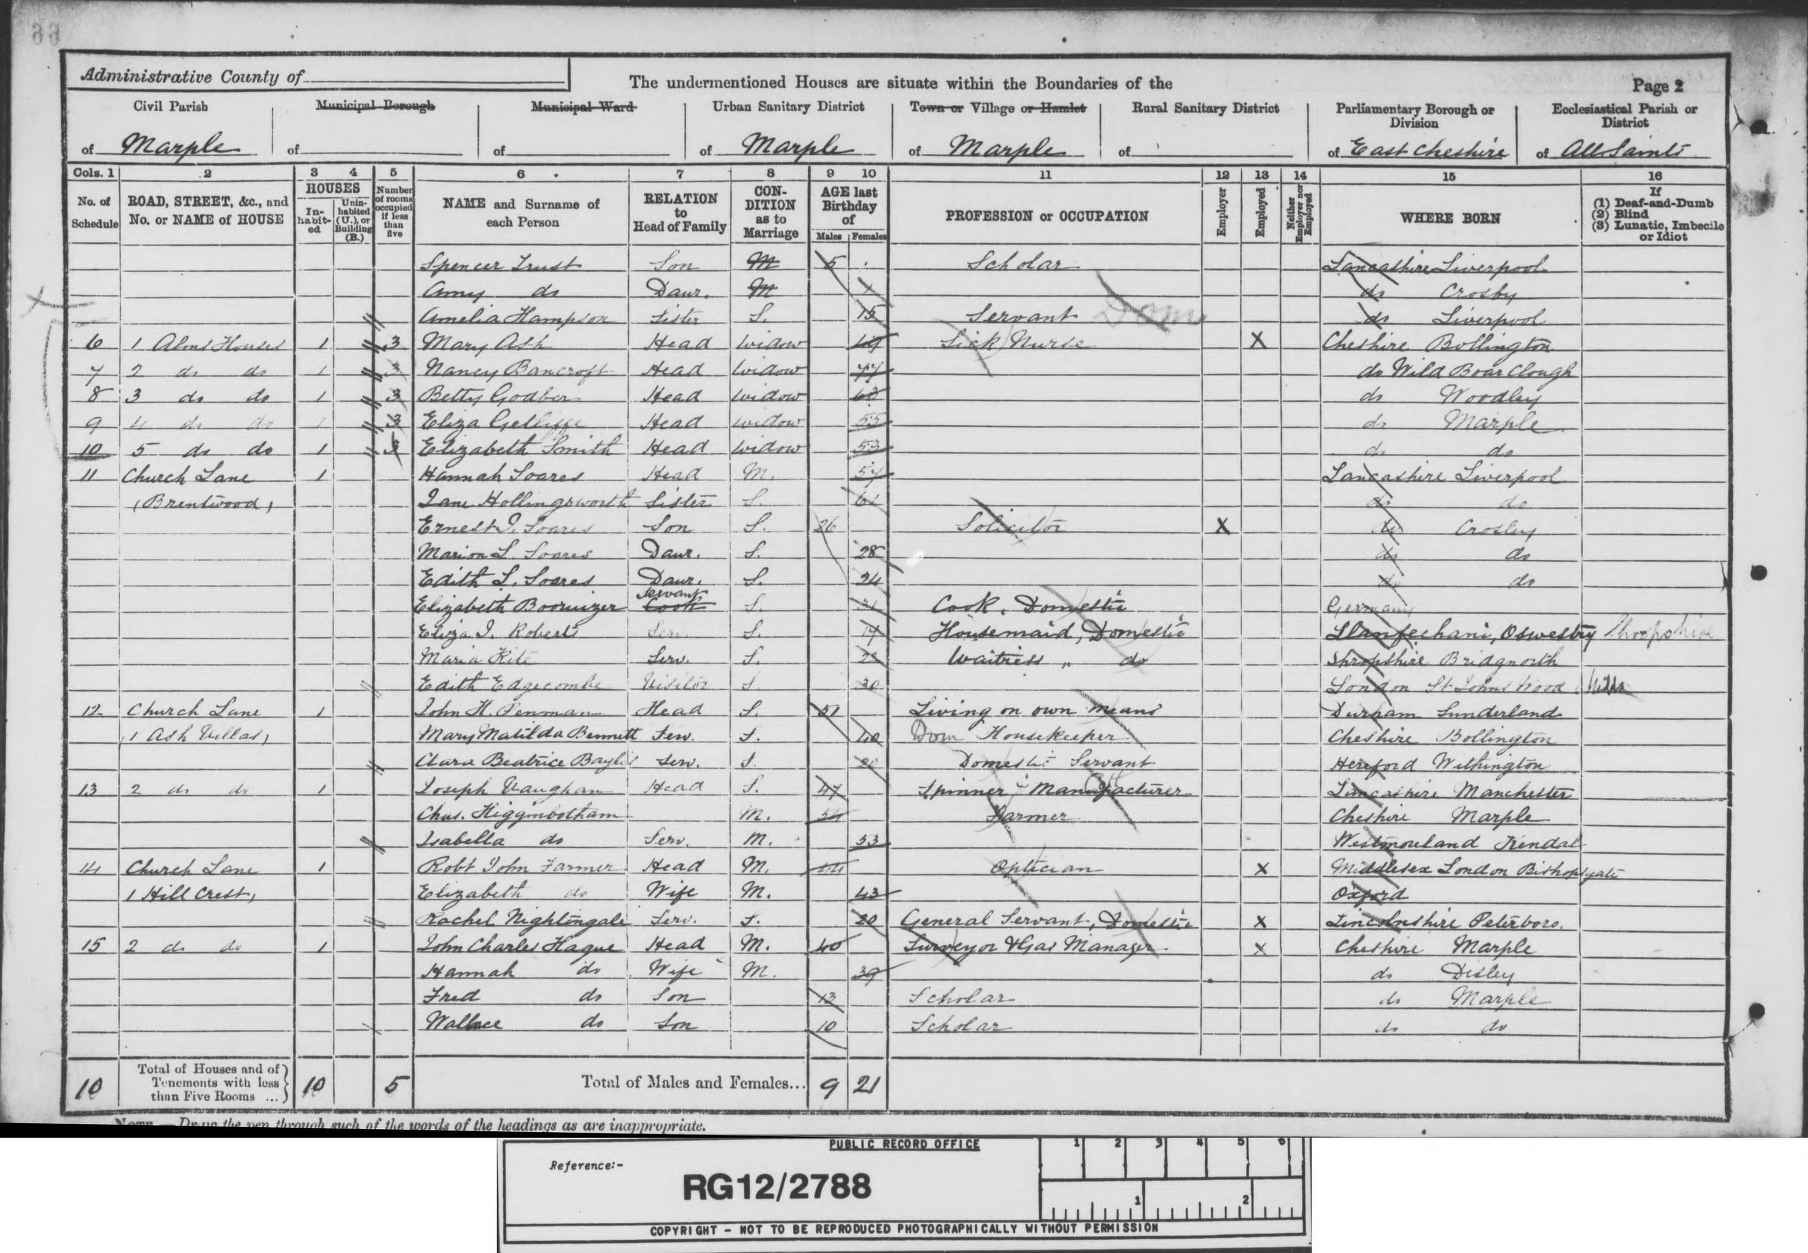 Administrative County of
The undermentioned Houses are situate within the Boundaries of the
Page 2
Civil Parish
Municipal Borough
Municipal Ward
Urban Sanitary District
Town or Village or Hamlet
Rural Sanitary District
Parliamentary Borough or Division
Ecclesiastical Parish or District
of Marple
of
of
of Marple
of Marple
of
of East Cheshire
of All Saints
Cols. 1 2 3 4 5 6 7 8 9 10 11 12 13 14 15 16
No. of Schedule
ROAD, STREET, &c., and No. or NAME of HOUSE
HOUSES
In-habit-ed
Unin-habited (U.), or Building (B.)
Number of rooms occupied if less than five
NAME and Surname of each Person
RELATION to Head of Family
CON-DITION as to Marriage
AGE last Birthday of
Males Females
PROFESSION or OCCUPATION
Employer
Employed
Neither Employer nor Employed
WHERE BORN
If
(1) Deaf-and-Dumb
(2) Blind
(3) Lunatic, Imbecile or Idiot
Spencer Trust Son M 5 Scholar Lancashire Liverpool
Amy do Daur. M 1 do Crosby
Amelia Hampson Sister S. 15 Servant Dom do Liverpool
6 1 Alms Houses 1 3 Mary Ash Head Widow Sick Nurse X Cheshire Bollington
7 2 do do 1 3 Nancy Bancroft Head Widow do Wild Boar Clough
8 3 do do 1 3 Betty Godber Head Widow do Woodley
9 4 do do 1 3 Eliza Getliffe Head widow 55 do Marple
10 5 do do 1 3 Elizabeth Smith Head Widow 53 do do
11 Church Lane 1 Hannah Soares Head M. Lancashire Liverpool
(Brentwood) Jane Hollingsworth Sister S. do do
Ernest J. Soares Son S. 26 Solicitor X do Crosby
Marion L. Soares Daur. S. 28 do do
Edith L. Soares Daur. S. 24 do do
Elizabeth Servant Cook S. Cook, Domestic Germany
Eliza J. Roberts Serv. S. 19 Housemaid, Domestic Llanfechani, Oswestry Shropshire
Maria Kite Serv. S. Waitress " do Shropshire Bridgnorth
Edith Edgecombe Visitor S. 30 London St Johns Wood
12 Church Lane 1 John H. Penman Head S. 51 Living on own means Durham Sunderland
1 Ash Villas, Mary Matilda Bennett Serv. S. 40 Dom Housekeeper Cheshire Bollington
Clara Beatrice Baylis Serv. S. 20 Domestic Servant Hereford Withington
13 2 do do 1 Joseph Vaughan Head S. 47 Spinner & Manufacturer Lancashire Manchester
Chas. Higginbotham M. Farmer Cheshire Marple
Isabella do Serv. M. 53 Westmoreland Kendal
14 Church Lane 1 Robt John Farmer Head M. Optician X Middlesex London Bishopsgate
1 Hill Crest, Elizabeth do Wife M. 43 Oxford
Rachel Nightingale Serv. S. 20 General Servant, Domestic X Lincolnshire Peterboro.
15 2 do do 1 John Charles Hague Head M. 40 Surveyor & Gas Manager X Cheshire Marple
Hannah do Wife M. 39 do Disley
Fred do Son 13 Scholar do Marple
Wallace do Son 10 Scholar do do
10 Total of Houses and of Tenements with less than Five Rooms ... 10 5 Total of Males and Females... 9 21
NOTE.—Draw the pen through such of the words of the headings as are inappropriate.
PUBLIC RECORD OFFICE
1 2 3 4 5 6
Reference:-
RG12/2788
1 2
COPYRIGHT - NOT TO BE REPRODUCED PHOTOGRAPHICALLY WITHOUT PERMISSION